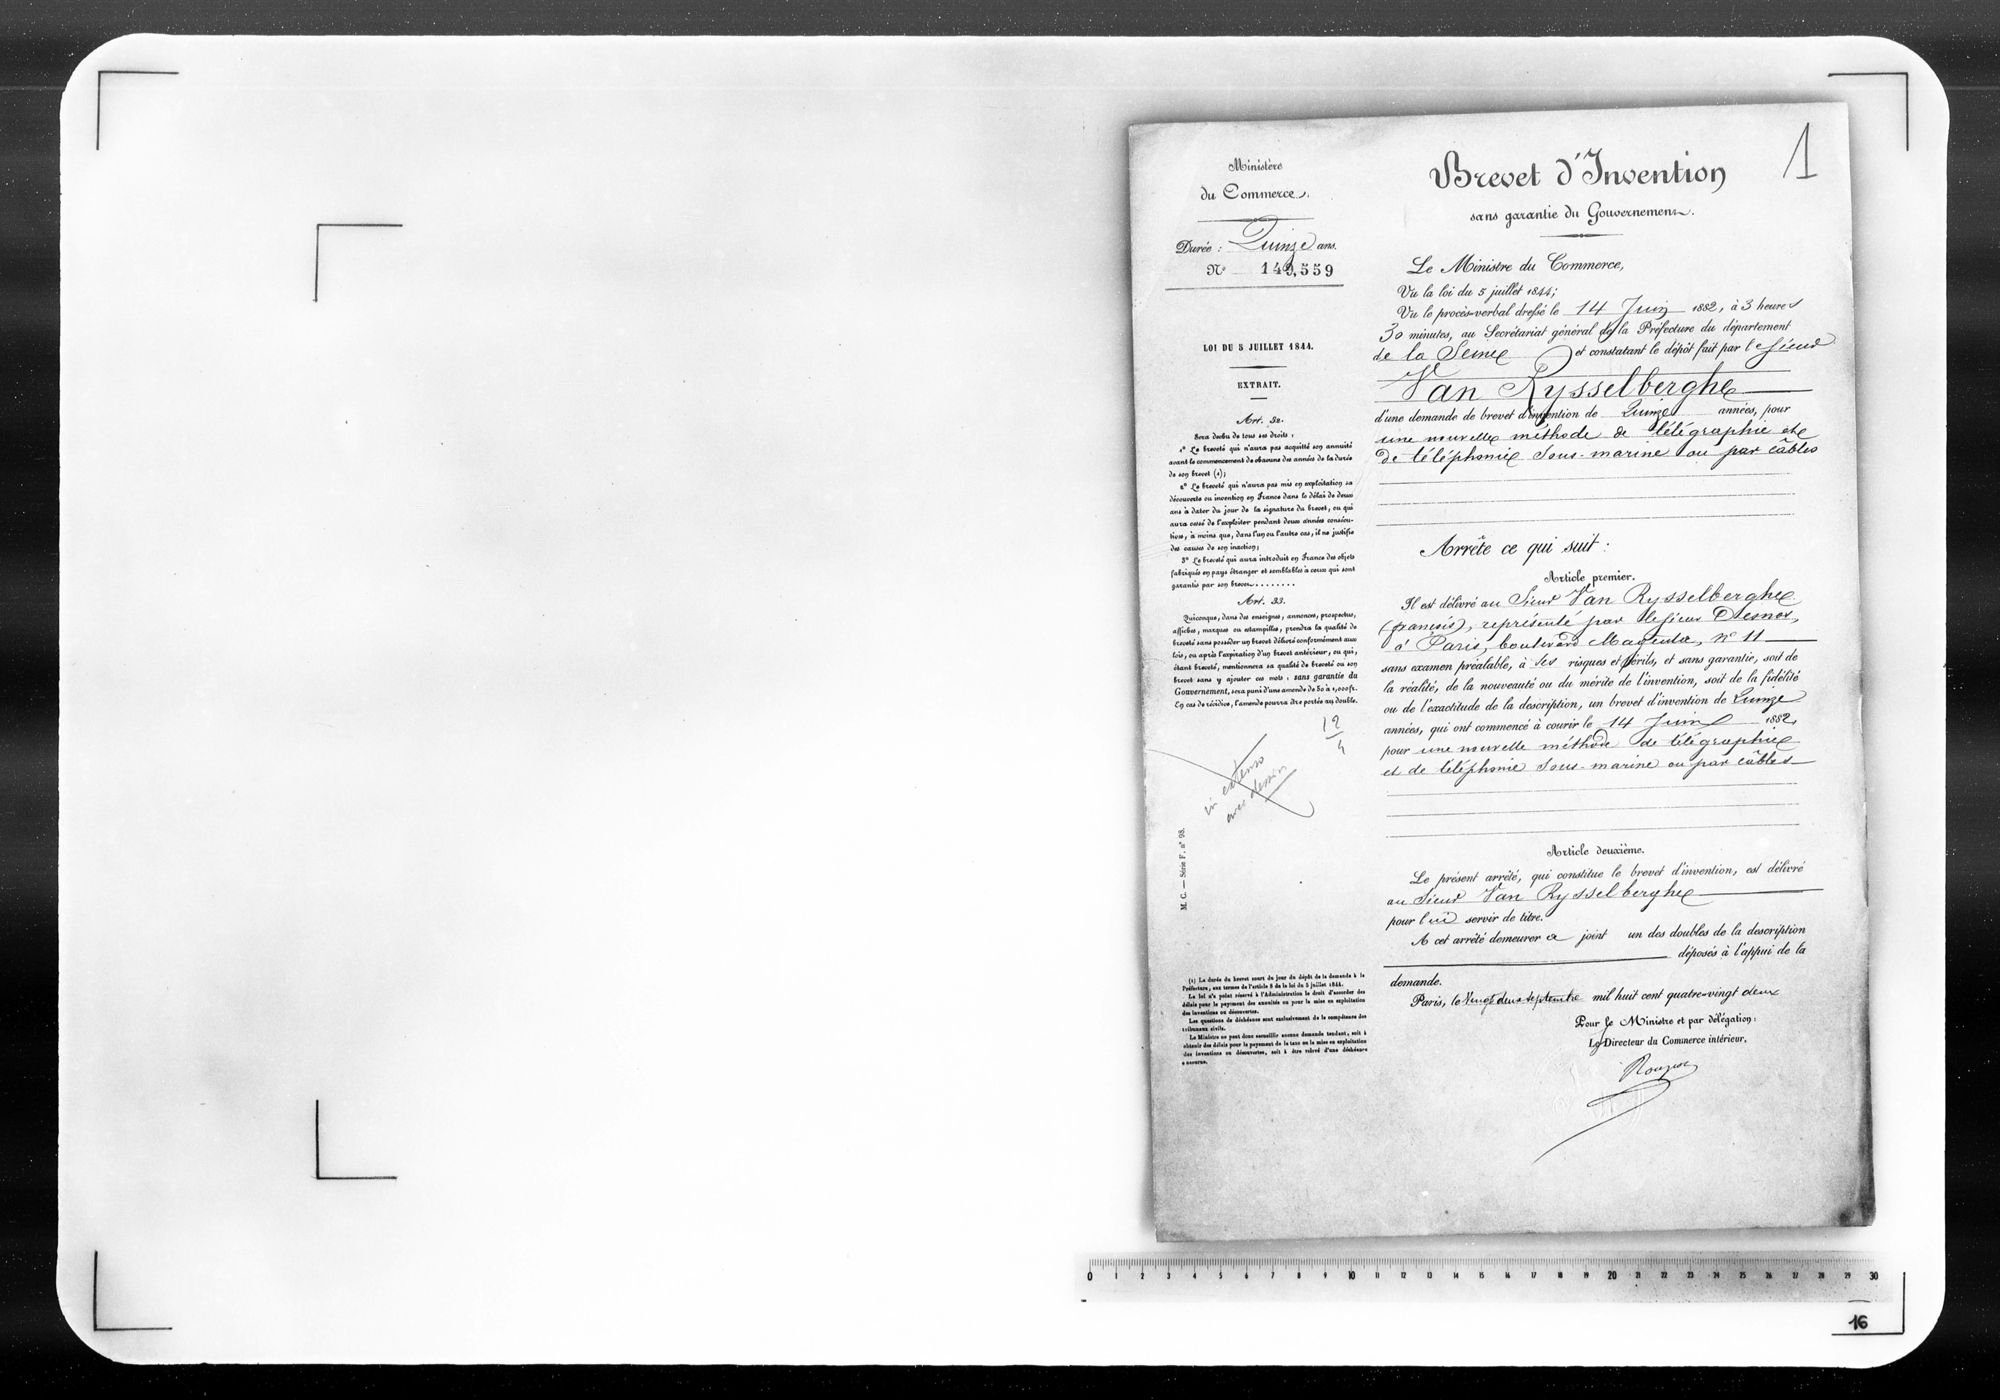 1
Ministère
du Commerce.
Durée : Quinze ans.
N° 149,559
LOI DU 5 JUILLET 1844.
EXTRAIT.
Art. 32.
Sera déchu de tous ses droits :
1° Le breveté qui n'aura pas acquitté son annuité
avant le commencement de chacune des années de la durée
de son brevet (1);
2° Le breveté qui n'aura pas mis en exploitation sa
découverte ou invention en France dans le délai de deux
ans à dater du jour de la signature du brevet, ou qui
aura cessé de l'exploiter pendant deux années consécu-
tives, à moins que, dans l'un ou l'autre cas, il ne justifie
des causes de son inaction;
3° Le breveté qui aura introduit en France des objets
fabriqués en pays étranger et semblables à ceux qui sont
garantis par son brevet........
Art. 33.
Quiconque, dans des enseignes, annonces, prospectus,
affiches, marques ou estampilles, prendra la qualité de
breveté sans posséder un brevet délivré conformément aux
lois, ou après l'expiration d'un brevet antérieur, ou qui,
étant breveté, mentionnera sa qualité de breveté ou son
brevet sans y ajouter ces mots : sans garantie du
Gouvernement, sera puni d'une amende de 50 à 1,000 fr.
En cas de récidive, l'amende pourra être portée au double.
12
4
in extenso
avec dessin
M. C. — Série F. n° 98.
(1) La durée du brevet court du jour du dépôt de la demande à la
Préfecture, aux termes de l'article 8 de la loi du 5 juillet 1844.
La loi n'a point réservé à l'Administration le droit d'accorder des
délais pour le payement des annuités ou pour la mise en exploitation
des inventions ou découvertes.
Les questions de déchéance sont exclusivement de la compétence des
tribunaux civils.
Le Ministre ne peut donc accueillir aucune demande tendant, soit à
obtenir des délais pour le payement de la taxe ou la mise en exploitation
des inventions ou découvertes, soit à être relevé d'une déchéance
encourue.
Brevet d'Invention
sans garantie du Gouvernement.
Le Ministre du Commerce,
Vu la loi du 5 juillet 1844;
Vu le procès-verbal dressé le 14 Juin 1882, à 3 heures
30 minutes, au Secrétariat général de la Préfecture du département
de la Seine et constatant le dépôt fait par le Sieur
Van Rysselberghe
d'une demande de brevet d'invention de Quinze années, pour
une nouvelle méthode de télégraphie et
de téléphonie sous-marine ou par câbles
Arrête ce qui suit :
Article premier.
Il est délivré au Sieur Van Rysselberghe
(françois), représenté par le sieur Desnos,
à Paris, boulevard Magenta, n° 11
sans examen préalable, à ses risques et périls, et sans garantie, soit de
la réalité, de la nouveauté ou du mérite de l'invention, soit de la fidélité
ou de l'exactitude de la description, un brevet d'invention de Quinze
années, qui ont commencé à courir le 14 Juin 1882,
pour une nouvelle méthode de télégraphie
et de téléphonie sous-marine ou par câbles
Article deuxième.
Le présent arrêté, qui constitue le brevet d'invention, est délivré
au Sieur Van Rysselberghe
pour lui servir de titre.
A cet arrêté demeurera joint un des doubles de la description
déposés à l'appui de la
demande.
Paris, le Vingt deux septembre mil huit cent quatre-vingt deux
Pour le Ministre et par délégation :
Le Directeur du Commerce intérieur,
0 1 2 3 4 5 6 7 8 9 10 11 12 13 14 15 16 17 18 19 20 21 22 23 24 25 26 27 28 29 30
16